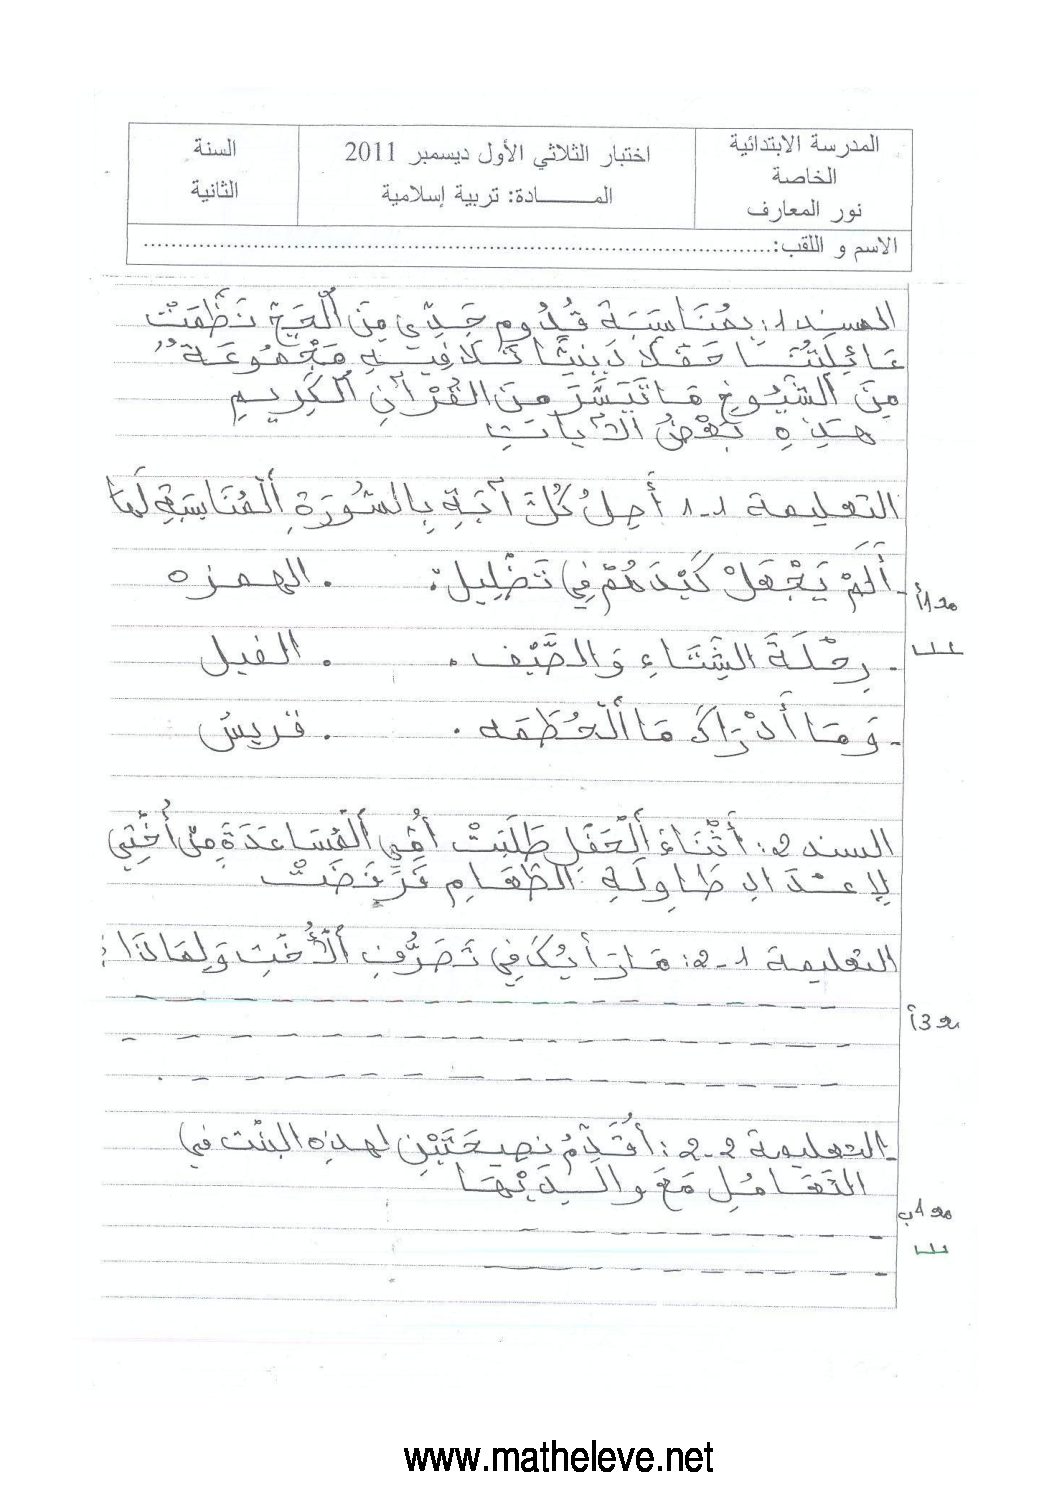 المدرسة الابتدائية
الخاصة
نور المعارف
اختبار الثلاثي الأول ديسمبر 2011
المـــــــادة: تربية إسلامية
السنة
الثانية
الاسم و اللقب:
السند 1: بِمُنَاسَبَةِ قُدُومِ جَدِّي مِنَ اَلْحَجِّ نَظَّمَتْ
عَائِلَتُنَا حَفْلًا دِينِيًّا تَلَا فِيهِ مَجْمُوعَةٌ
مِنَ الشُّيُوخِ مَا تَيَسَّرَ مِنَ القُرْآنِ الكَرِيمِ
هَذِهِ بَعْضُ الآيَاتِ
التعليمة 1-1 أَصِلُ كُلَّ آيَةٍ بِالسُّورَةِ اَلْمُنَاسِبَةِ لَهَا
- أَلَمْ يَجْعَلْ كَيْدَهُمْ فِي تَضْلِيلٍ . . الهمزه
- رِحْلَةَ الشِّتَاءِ وَالصَّيْفِ . . الفيل
- وَمَا أَدْرَاكَ مَا اَلْحُطَمَه . . قريش
مع 1أ
السند 2: أَثْنَاءَ اَلْحَفْلِ طَلَبَتْ أُمِّي اَلْمُسَاعَدَةَ مِنْ أُخْتِي
لِإعْدَادِ طَاوِلَةِ الطَّعَامِ فَرَفَضَتْ
التعليمة 1-2: مَا رَأْيُكَ فِي تَصَرُّفِ اَلْأُخْتِ وَلِمَاذَا :
مع 3أ
- التعليمة 2-2: أُقَدِّمُ نَصِيحَتَيْنِ لهذه البنْت في
التَّعَامُلِ مَعَ وَالِدَيْهَا
مع 1ب
www.matheleve.net